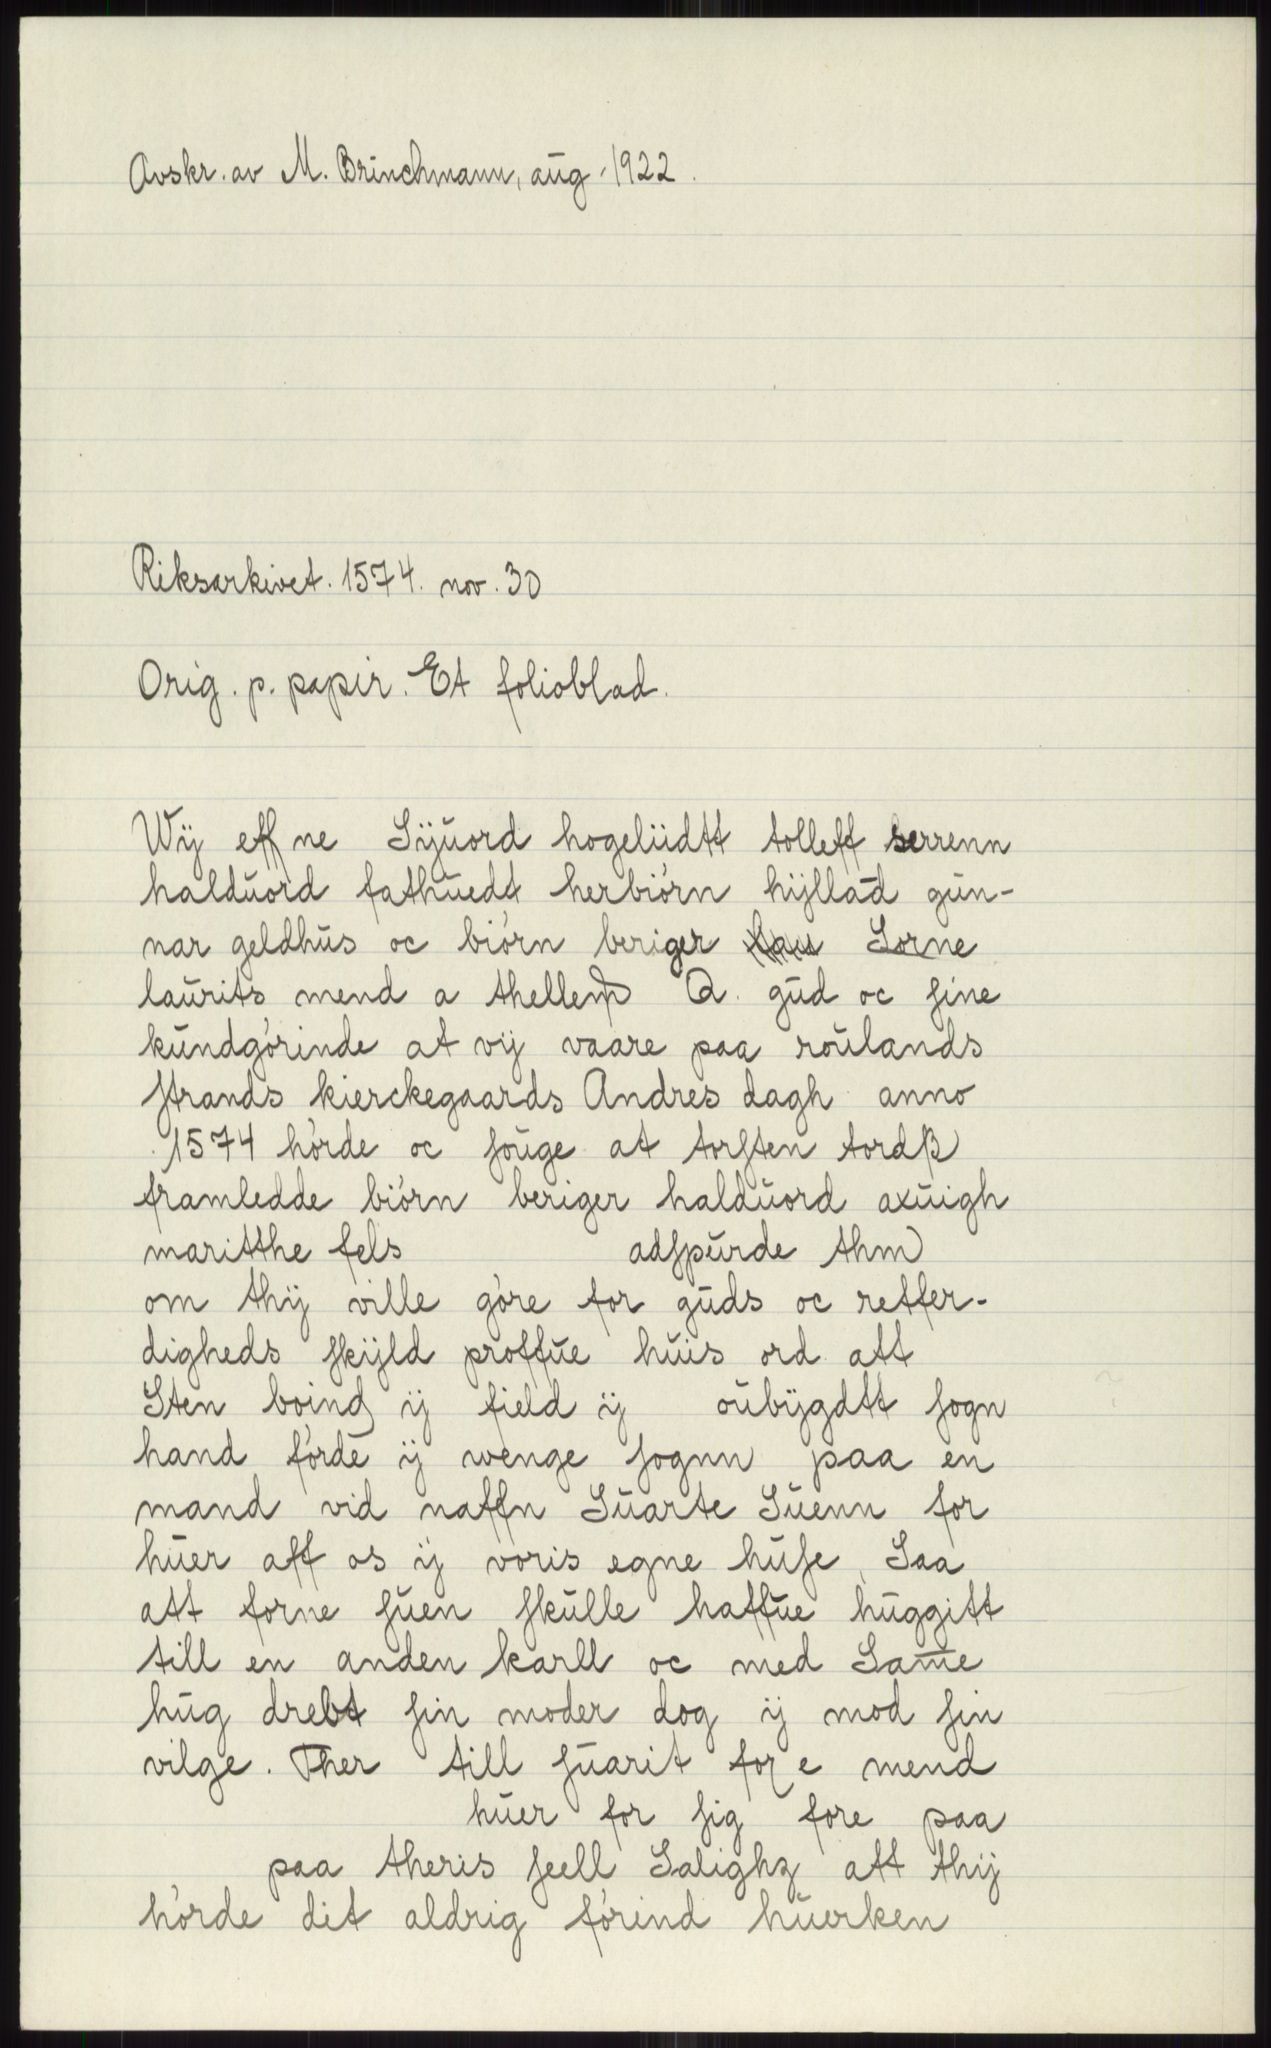 Avskr. av M. Brinchmann, aug. 1922.
Riksarkivet. 1574. nov. 30
Orig. p. papir. Et folioblad.
Wÿ eff ne Sÿuord hogelüdtt tolleff serrenn
halduord fathuedt herbiørn hÿllad gun-
nar geldhus oc biørn beriger Sorne
laurits mend a thellem Q. gud oc sine
kundgørinde at vÿ vaare paa roulands
strands kierckegaards Andres dagh anno
1574 hørde oc souge at torsten tordß
framledde biørn beriger halduord axuigh
maritthe fels adspurde thm
om thÿ ville gøre for guds oc retfer-
digheds skÿld proffue huis ord att
Sten boing ÿ field ÿ oubÿgdtt sogn
hand førde ÿ wenge sognn paa en
mand vid naffn Suarte Suenn for
huer aff os ÿ voris egne huse Saa
att forne suen skulle haffue huggitt
till en anden karll oc med Same
hug drebt sin moder dog ÿ mod sin
vilge. Ther till suarit for e mend
huer for sig fore paa
paa theris seell Salighz att thÿ
hørde dit aldrig førind huerken